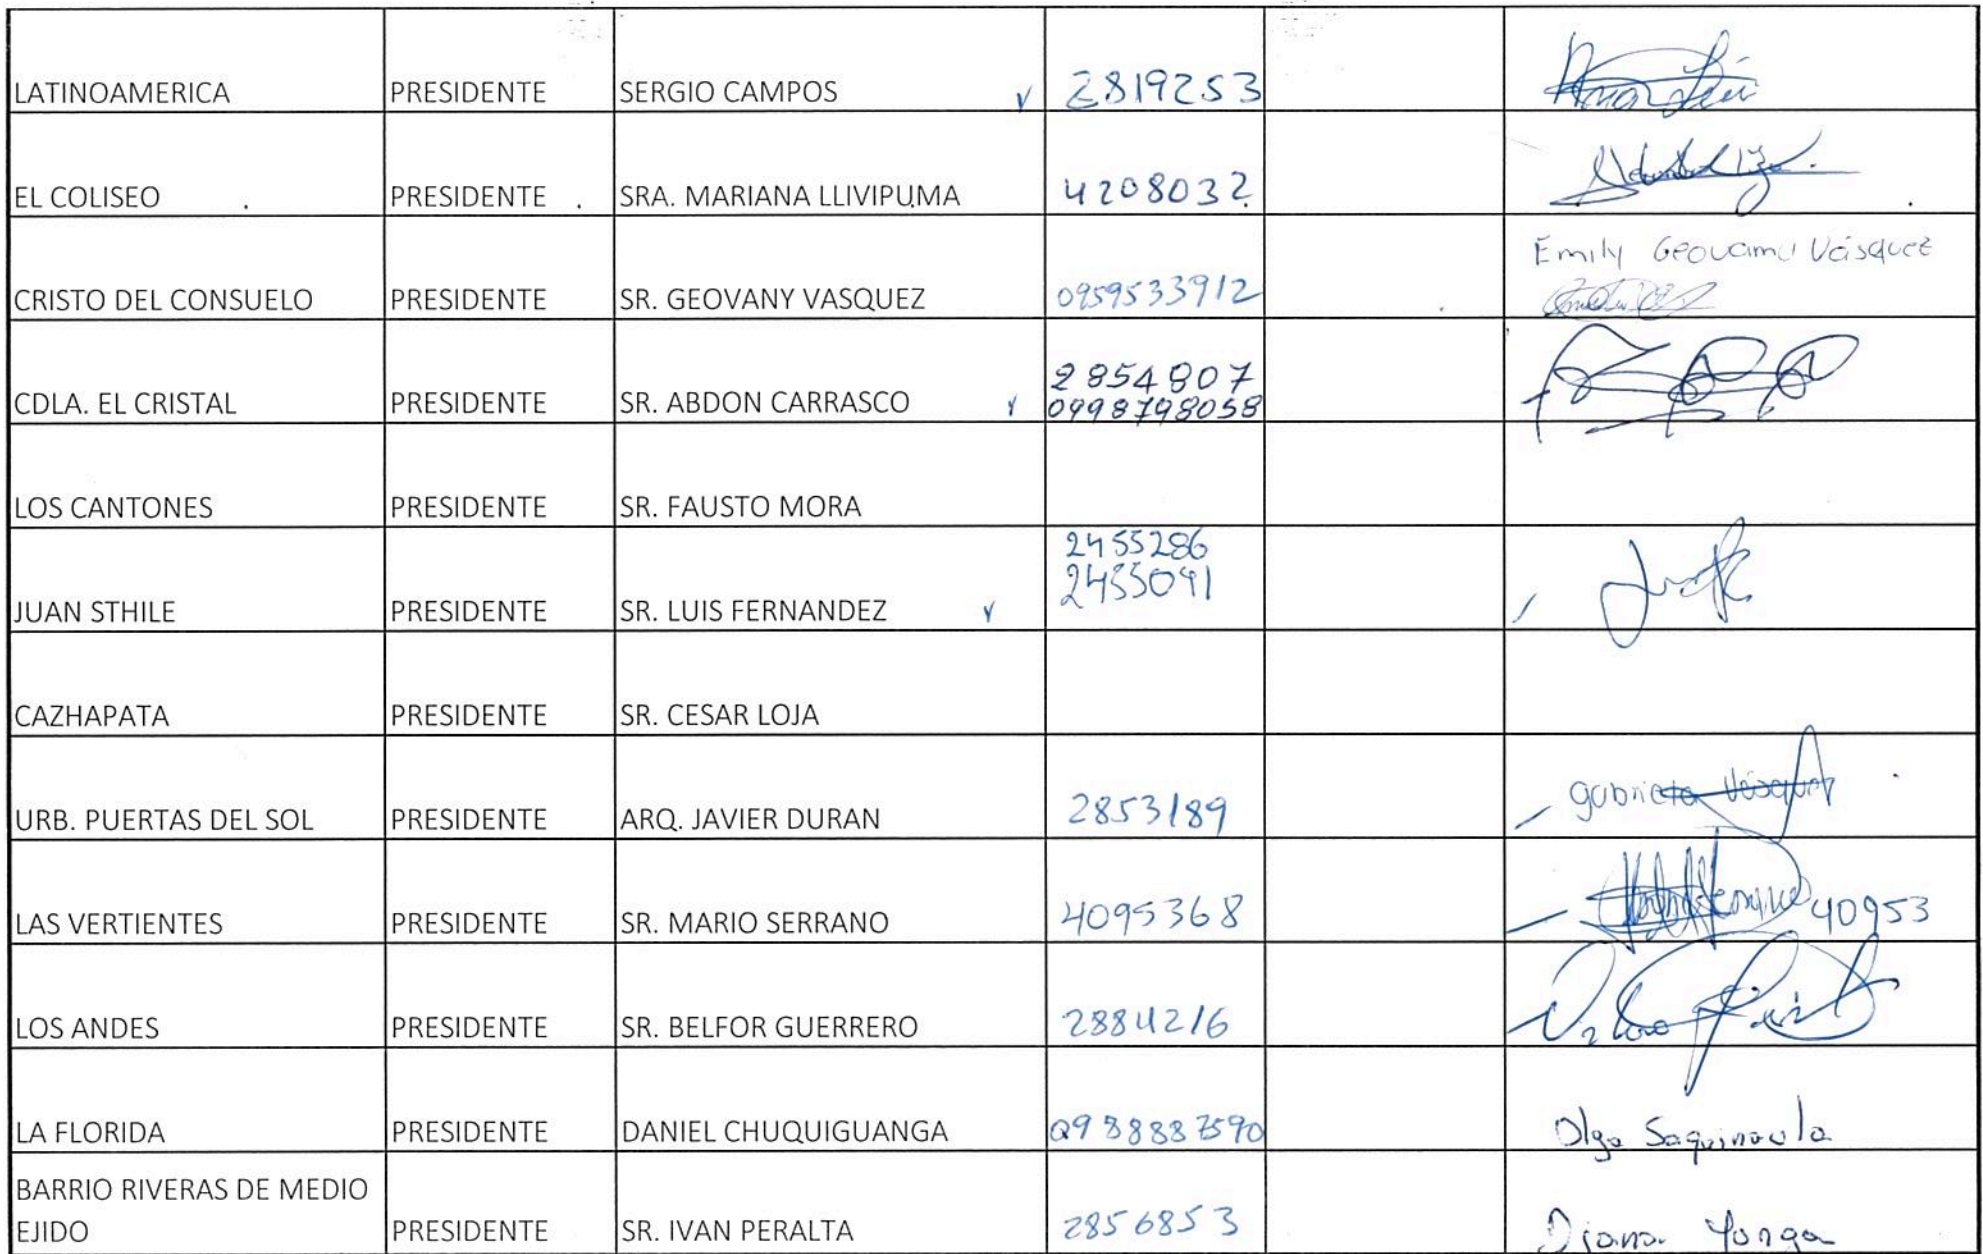 LATINOAMERICA PRESIDENTE SERGIO CAMPOS 2819253
EL COLISEO PRESIDENTE SRA. MARIANA LLIVIPUMA 4208032
Emily Geovanna Vásquez
CRISTO DEL CONSUELO PRESIDENTE SR. GEOVANY VASQUEZ 0959533912
2854807
CDLA. EL CRISTAL PRESIDENTE SR. ABDON CARRASCO 0998798058
LOS CANTONES PRESIDENTE SR. FAUSTO MORA
2455286
2455091
JUAN STHILE PRESIDENTE SR. LUIS FERNANDEZ
CAZHAPATA PRESIDENTE SR. CESAR LOJA
URB. PUERTAS DEL SOL PRESIDENTE ARQ. JAVIER DURAN 2853189 gabriela Vásquez
LAS VERTIENTES PRESIDENTE SR. MARIO SERRANO 4095368 40953
LOS ANDES PRESIDENTE SR. BELFOR GUERRERO 2884216
LA FLORIDA PRESIDENTE DANIEL CHUQUIGUANGA 0988887590 Olga Saquinaula
BARRIO RIVERAS DE MEDIO
EJIDO PRESIDENTE SR. IVAN PERALTA 2856853 Diana Yunga